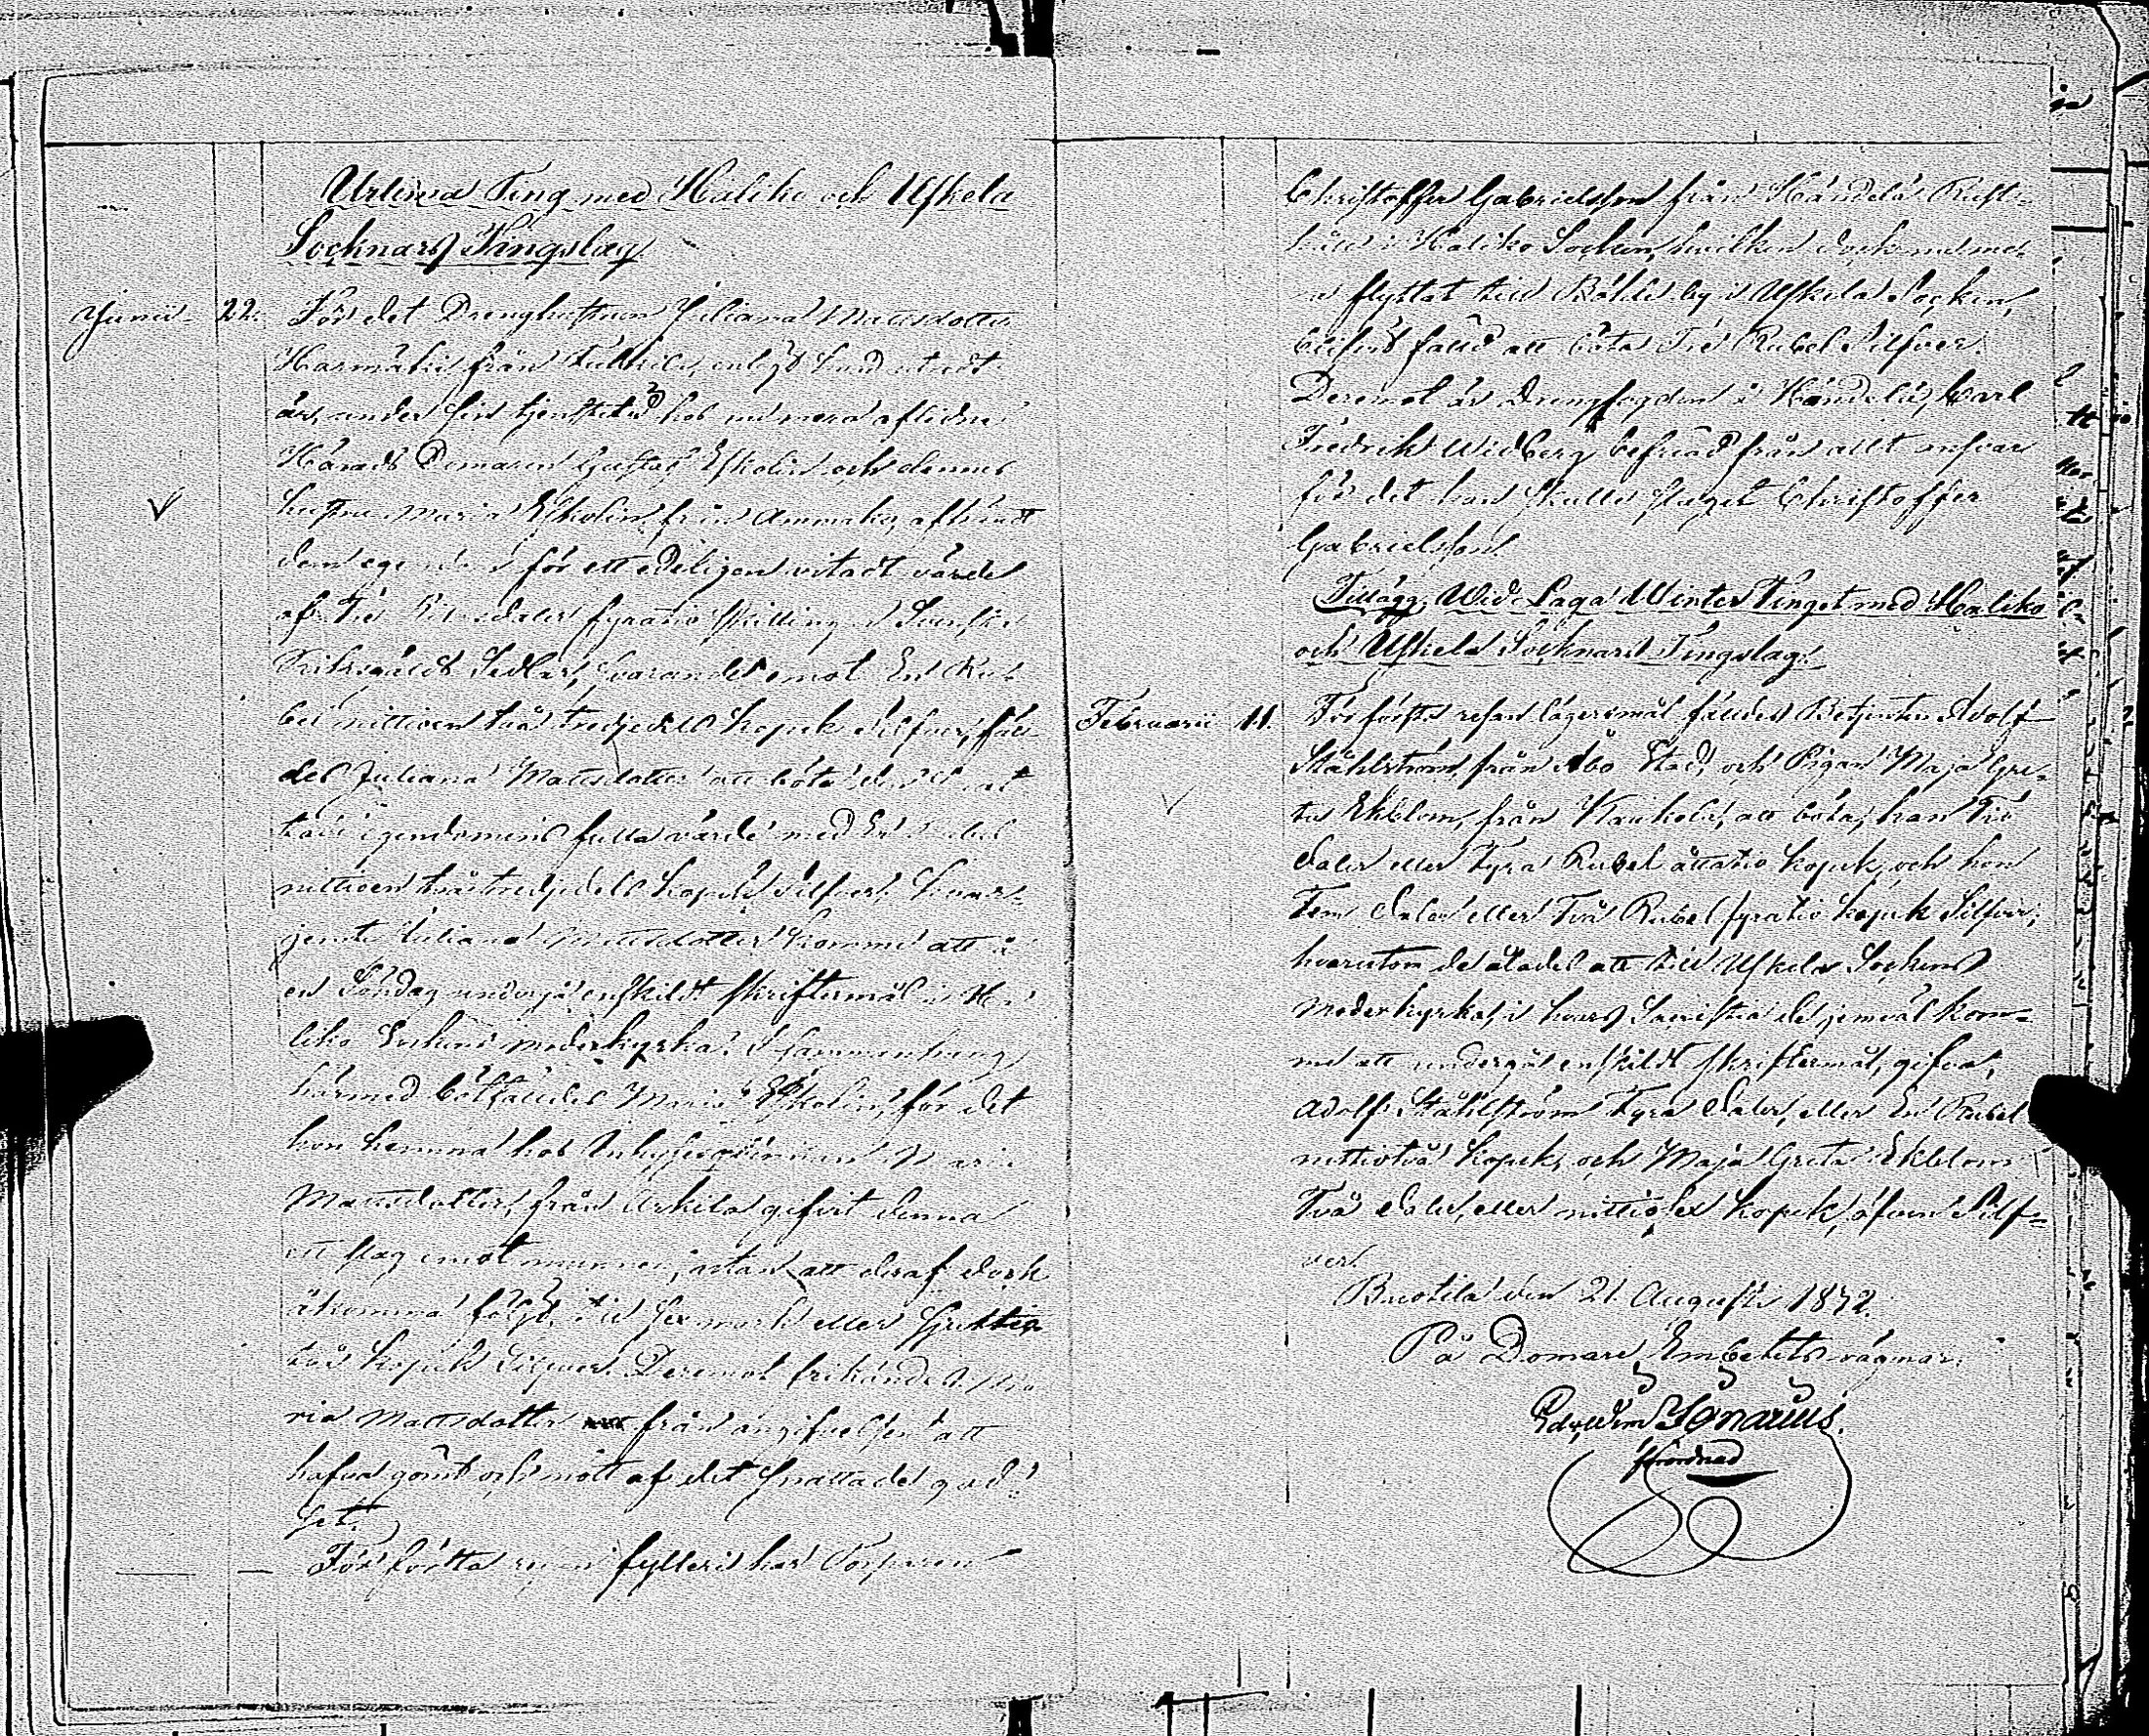 Urtima Ting med Haliko och Uskela
Socknars Tingslag.
Junii 22. För det Drenghustrun Juliana Mattsdotter
Harmäki från enligt hvad utredt
är, under sin tjenstetid hos numera aflidne
Härads Domaren Gustaf Eskolin och dennes
hustru Maria Eskolin från Ammaby afhändt
dem egendom för ett edeligen vitadt värde
af Tre Riksdaler fyratio skillingar Svenska
Riksgälds Sedlar, svarande emot En Ru-
bel nittioen två tredjedels kopek Silfver, fäll-
des Juliana Mattsdotter att böta det
egendomens fulla värde med En Rubel
nittioen två tredjedels kopek Silfver, hvar-
jemte Juliana Mattsdotter kommer att å
en Söndag undergå enskildt skriftermål i Ha-
liko Sockens moderkyrka. I sammanhang
härmed bötfälldes Maria Eskolin, för det
hon hemma hos Inhyseqvinnan Maria
Mattsdotter, från Arkila gifvit denna
ett slag emot munnen, utan att deraf dock
åkomma följt, till Sex mark eller Sjuttio
två kopek Silfver. Deremot frikändes Ma-
ria Mattsdotter från angifvelsen att
hafva gömt och nött af det snattade god-
set.
För första resan fylleri har Torparen
Christoffer Gabrielsson från Händelä Rust-
håll i Haliko Socken, hvilken dock nume-
ra flyttat till by i Uskela Socken,
blifvit fälld att böta Tre Rubel Silfver.
Deremot är Drengfogden å Händelä, Carl
Fredrik Widberg befriad från allt ansvar
för det han skulle slaget Christoffer
Gabrielsson.
Tillägg. Wid Laga Winter Tinget med Haliko
och Uskela Socknars Tingslag.
Februarii 11. För första resan lägersmål fälldes Betjenten Adolf
Ståhlström från Åbo Stad, och Pigan Maja Gre-
ta Ekblom, från Kaukola, att böta, han Tio
daler eller Fyra Rubel åttatio kopek, och hon
Fem daler eller Två Rubel fyratio kopek Silfver;
hvarutom de ålades att till Uskela Sockens
Moderkyrka, i hvars Sacristia de jemväl kom-
me att undergå enskildt skriftermål, gifva,
Adolf Ståhlström Fyra daler, eller En Rubel
nittiotvå kopek, och Maja Greta Ekblom
Två daler, eller nittiosex kopek, äfven Silf-
ver.
den 21 Augusti 1842.
På Domare Embetets vägnar.
Edv. Wilh. Ignatius.
förordnad